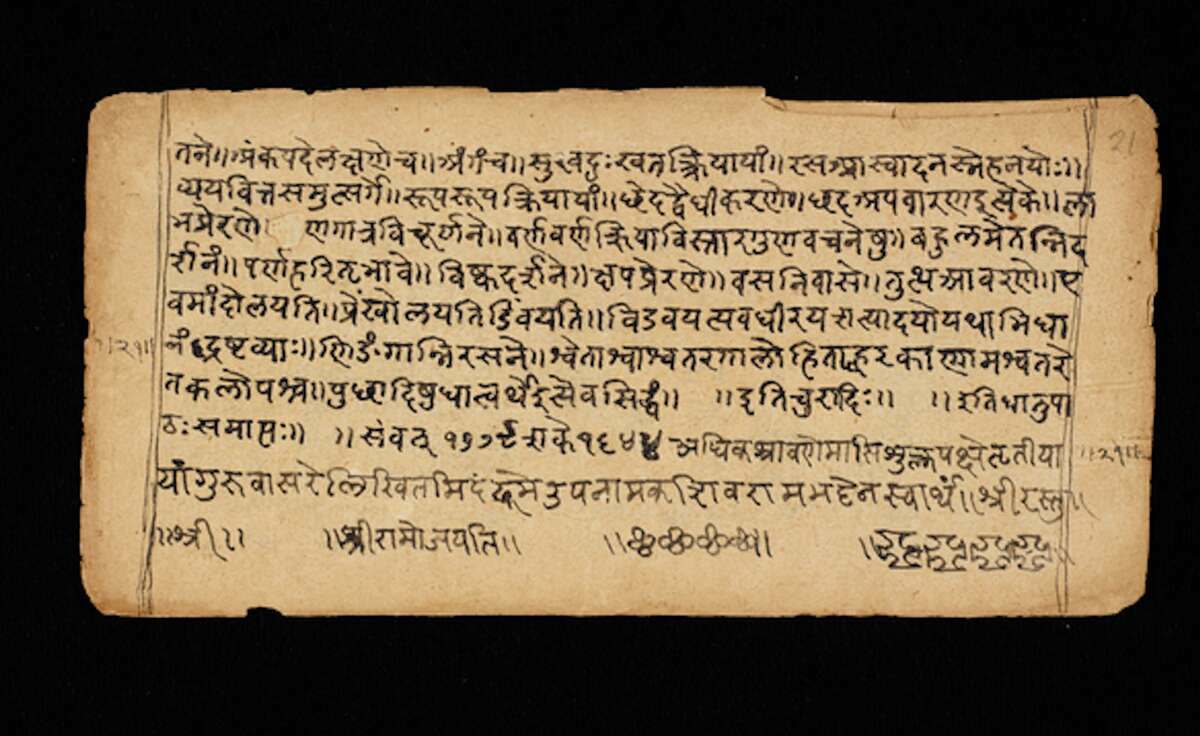 21
तने॥अंकपदेलक्षणेच॥अंगंच॥सुखदुःखतत्क्रियायां॥रसआस्वादनस्नेहनयोः॥
व्ययवित्तसमुत्सर्गे॥रूपरूपक्रियायां॥छेदद्वैधीकरणे॥छदअपवारणइत्येके॥ला
भप्रेरणे॥ णगात्रविचूर्णने॥वर्णवर्णक्रियाविस्तारगुणवचनेषु॥बहुलमेतन्निद
र्शनं॥पर्णहरितभावे॥विष्कदर्शने॥क्षपप्रेरणे॥वसनिवासे॥तुत्थआवरणे॥ए
वमांदोलयति॥प्रेंखोलयतिडिंवयति॥विडवयत्यवधीरयत्यादयोयथाभिधा
नंद्रष्टव्याः॥णिङंगान्निरसने॥श्वेताश्वाश्वतरगालोहिताह्वरकाणामश्वतरे
तकलोपश्च॥पुछादिषुधात्वर्थेइत्येवसिद्धं॥ ॥इतिचुरादिः॥ ॥इतिधातुपा
॥२१॥
ठःसमाप्तः॥ ॥संवत् १७७९ शके१६४४ अधिकश्रावणेमासिशुक्लपक्षेतृतीया
॥२१॥
यांगुरुवासरेलिखितमिदं उपनामकशिवरामभट्टेनस्वार्थं॥श्रीरस्तु॥
॥श्री॥ ॥श्रीरामोजयति॥